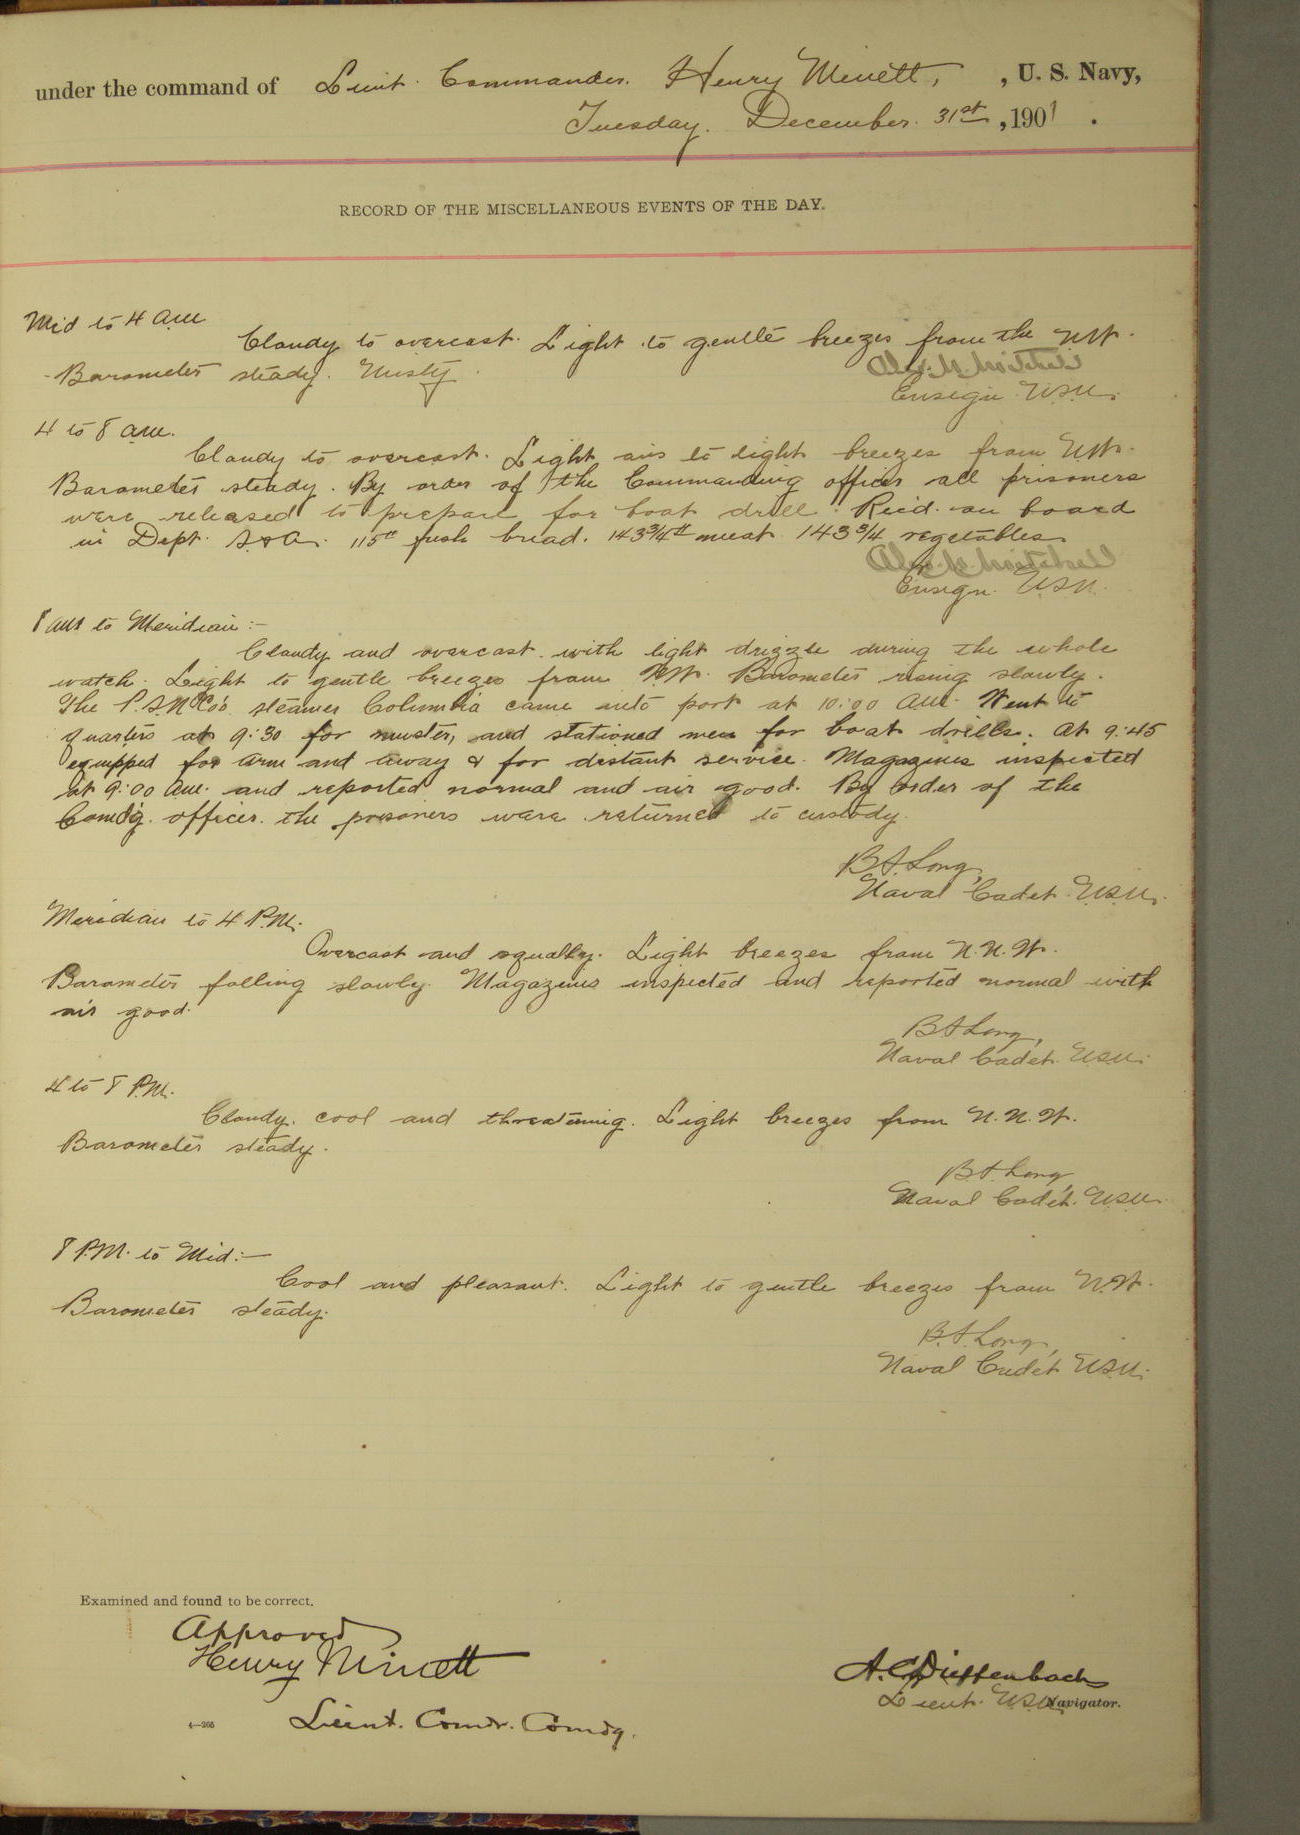 under the command of Lieut. Commander. Henry Minett, , U. S. Navy,
Tuesday. December. 31st, 1901.
RECORD OF THE MISCELLANEOUS EVENTS OF THE DAY.
Mid to 4 a.m.
Cloudy to overcast. Light to gentle breezes from the NW.
Barometer steady. Misty.
Ensign U.S.N.
4 to 8 a.m.
Cloudy to overcast. Light airs to light breezes from NW.
Barometer steady. By order of the Commanding officer all prisoners
were released to prepare for boat drill. Recd. on board
in Dept. S. & A. 115# fresh bread. 143 3/4# meat 143 3/4 vegetables
Ensign. U.S.N.
8 a.m. to Meridian:-
Cloudy and overcast with light drizzle during the whole
watch. Light to gentle breezes from NW. Barometer rising slowly.
The P.S.N. Co's. steamer Columbia came into port at 10:00 A.M. Went to
quarters at 9:30 for muster, and stationed men for boat drills. At 9:45
equipped for arm and away & for distant service. Magazines inspected
at 9:00 a.m. and reported normal and air good. By order of the
Comd'g. officer. the prisoners were returned to custody.
B A Long,
Naval Cadet. U.S.N.
Meridian to 4 P.M.
Overcast and squally. Light breezes from N.N.W.
Barometer falling slowly. Magazines inspected and reported normal with
air good.
B A Long,
Naval Cadet. U.S.N.
4 to 8 P.M.
Cloudy. cool and threatening. Light breezes from N.N.W.
Barometer steady.
B A Long
Naval Cadet. U.S.N.
8 P.M. to Mid:-
Cool and pleasant. Light to gentle breezes from N.W.
Barometer steady.
B. A. Long,
Naval Cadet U.S.N.
Examined and found to be correct.
Approved
Henry Minett
Lieut. Comdr. Comdg.
A. C. Dieffenbach
Lieut. U.S.N. Navigator.
4—265